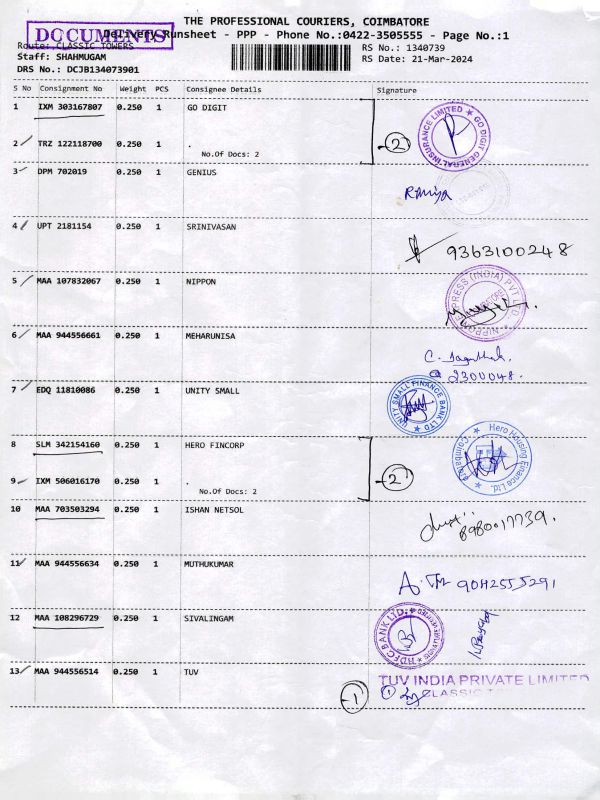 THE PROFESSIONAL COURIERS, COIMBATORE
DOCUMENTS
Delivery Runsheet - PPP - Phone No.:0422-3505555 - Page No.:1
Route: CLASSIC TOWERS
RS No.: 1340739
Staff: SHAHMUGAM
RS Date: 21-Mar-2024
DRS No.: DCJB134073901
S No Consignment No Weight PCS Consignee Details Signature
1 IXM 303167807 0.250 1 GO DIGIT
GO DIGIT GENERAL INSURANCE LIMITED
2 TRZ 122118700 0.250 1 .
No.Of Docs: 2
2
3 DPM 702019 0.250 1 GENIUS
4 UPT 2181154 0.250 1 SRINIVASAN
9363100248
5 MAA 107832067 0.250 1 NIPPON
NIPPON EXPRESS (INDIA) PVT LTD.
6 MAA 944556661 0.250 1 MEHARUNISA
2300048.
7 EDQ 11810086 0.250 1 UNITY SMALL
UNITY SMALL FINANCE BANK LTD
8 SLM 342154160 0.250 1 HERO FINCORP
Hero Housing Finance Ltd.
Coimbatore
9 IXM 506016170 0.250 1 .
No.Of Docs: 2
2
10 MAA 703503294 0.250 1 ISHAN NETSOL
8980017739.
11 MAA 944556634 0.250 1 MUTHUKUMAR
9042555291
12 MAA 108296729 0.250 1 SIVALINGAM
HDFC BANK LTD.
13 MAA 944556514 0.250 1 TUV
TUV INDIA PRIVATE LIMITED
1
1
CLASSIC